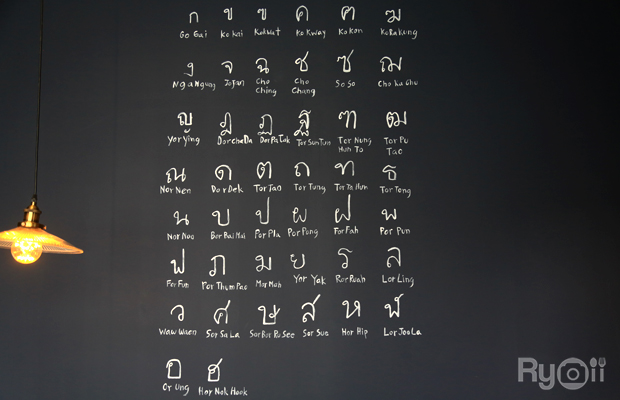 ก ข ฃ ค ฅ ฆ
Go Gai Ko kai Ko Kway Ko Kon Ko Ra Kang
ง จ ฉ ช ซ ฌ
Cho Ching Cho Chang So So
ญ ฎ ฏ ฐ ฑ ฒ
Yor Ying Dor Cha Da Dor Pa Tak Tor Sun Tun Tor Nung Hun To Tor Pu Tao
ณ ด ต ถ ท ธ
Nor Nen Dor Dek Tor Tao Tor Tung Tor Ta Hun Tor Tong
น บ ป ผ ฝ พ
Nor Noo Bor Bai Mai Por Pla Por Pung For Fah Por Pun
ฟ ภ ม ย ร ล
For Fun Por Thum Pao Mor Mah Yor Yak Ror Ruah Lor Ling
ว ศ ษ ส ห ฬ
Waw Waen Sor Sa La Sor Bor Ru See Sor Sua Hor Hip Lor Joo La
อ ฮ
Or Ung Hor Nok Hook
Ryoii